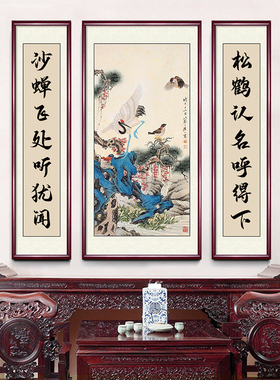 松鹤认名呼得下
沙蝉飞处听犹闻